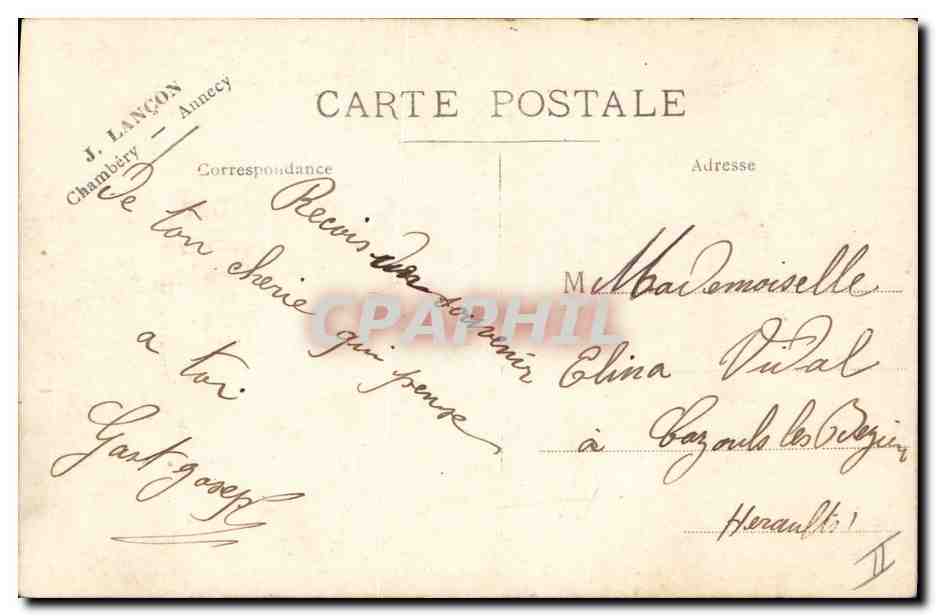 J. LANÇON
Chambéry - Annecy
CARTE POSTALE
Correspondance
Adresse
Recois souvenir
De ton cherie qui pense
a toi
Gast Joseph
M Mademoiselle
Elina Vidal
à Cazouls les Bezier
Herault
CPAPHIL
II